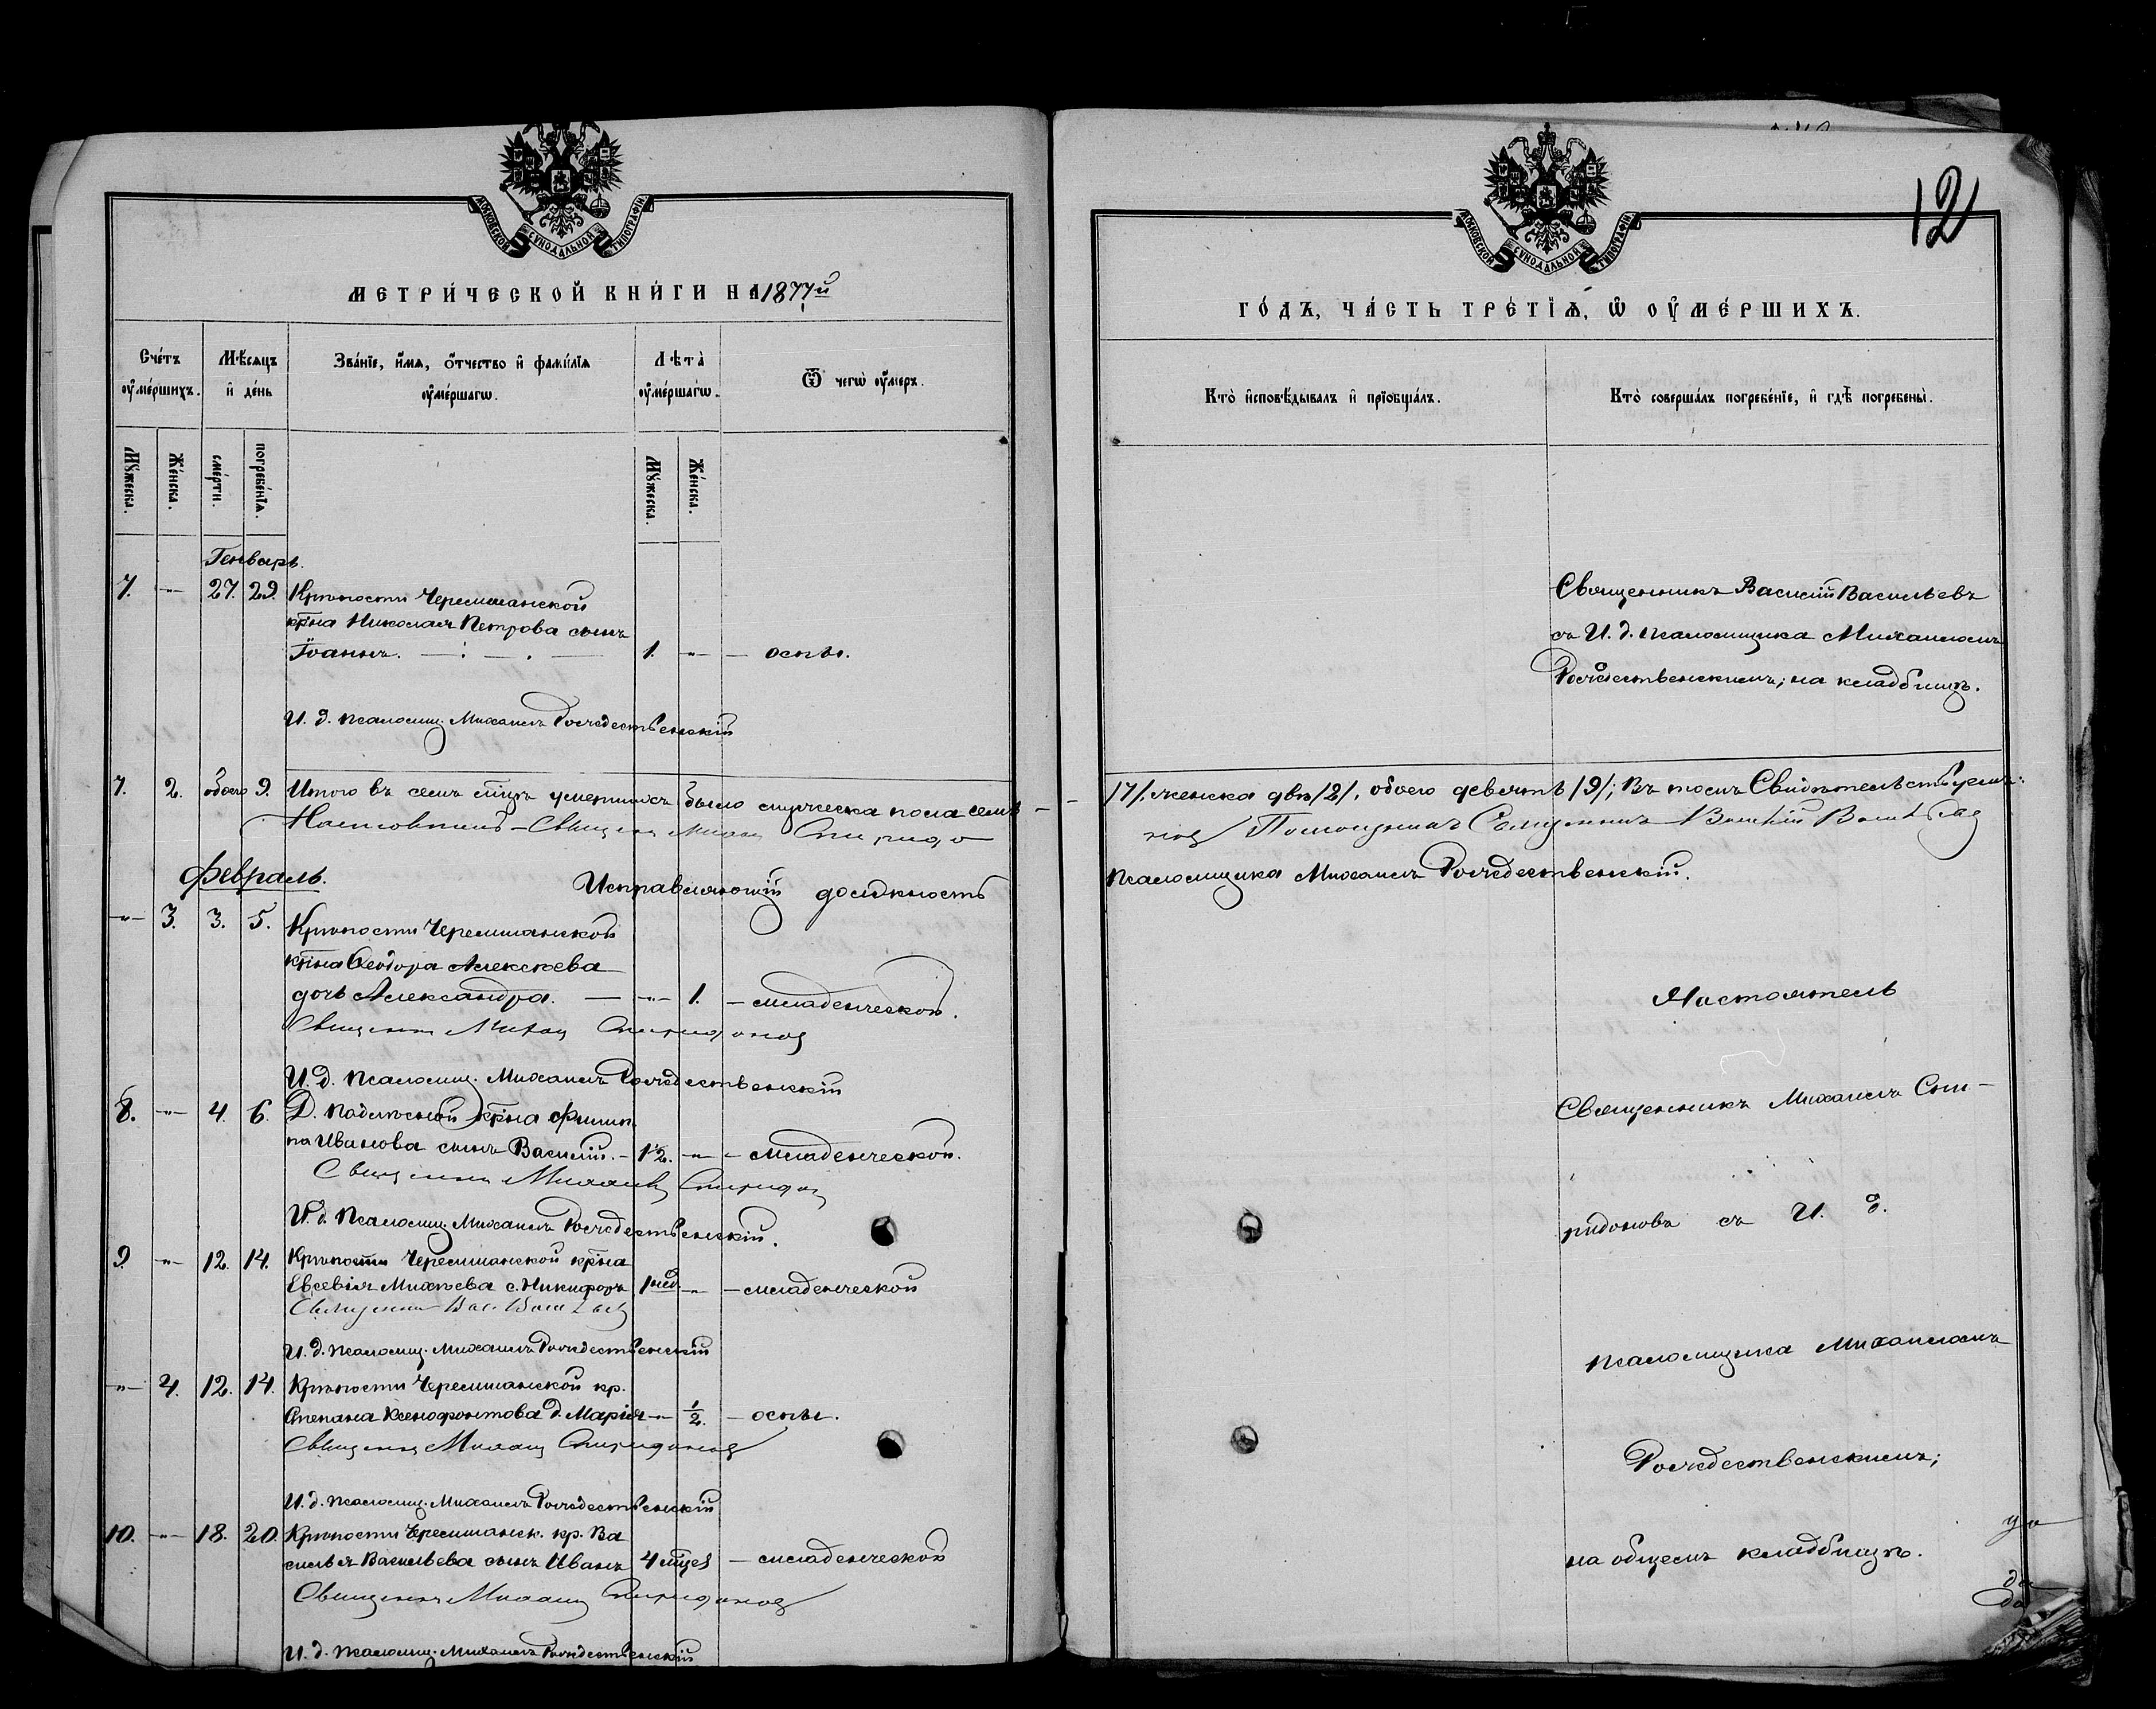 МОСКОВСКОЙ СѴНОДАЛЬНОЙ ТИПОГРАФІИ
МЕТРИ́ЧЕСКОЙ КНИ́ГИ НА 1877й
Счéтъ оу҆мéршихъ.
Мѣ́сяцъ и҆ дéнь
Звáнїе, и҆́мѧ, ѻ҆́тчество и҆ фамѝлїѧ оу҆мéршагѡ.
Лѣтà оу҆мéршагѡ.
Ѿ чегѡ̀ оу҆́меръ.
Мꙋ́жеска.
Жéнска.
смéрти.
погребéнїѧ.
Мꙋ́жеска.
Жéнска.
Генварь.
7. -„- 27. 29. Крѣпости Черемшанской
кр̃на Николая Петрова сынъ
Іоаннъ. 1. -„- — оспы.
И. д. псаломщ. Михаилъ Рождественскій
7. 2. обоего 9. Итого въ семъ м̃цѣ умершихъ было мужеска пола семь —
Настоятель — Священ Миха Спиридо
Февраль.
Исправляющій должность
-„- 3. 3. 5. Крѣпости Черемшанской
кр̃на Ѳеодора Алексѣева
дочь Александра. — -„- 1. — младенческой.
Священ Михаи Спиридонов
И. д. псаломщ. Михаилъ Рождественскій
8. -„- 4. 6. Д. кр̃на Филип
па Иванова сынъ Василій. — 1½. -„- — младенческой.
Священ Михаил Спиридон
И. д. псаломщ. Михаилъ Рождественскій.
9. -„- 12. 14. Крѣпости Черемшанской кр̃на
Евсевія Михѣева с. Никифоръ 1 нед. -„- — младенческой
Священни Вас. Васильев
И. д. псаломщ. Михаилъ Рождественскій
-„- 4. 12. 14. Крѣпости Черемшанской кр.
Степана Ксенофонтова д. Марія -„- ½. — оспы.
Священ Михаи Спиридонов
И. д. псаломщ. Михаилъ Рождественскій
10. -„- 18. 20. Крѣпости Черемшанск. кр. Ва
силья Васильева сынъ Иванъ 4 м̃цев — младенческой
Священ Михаи Спиридонов
И. д. псаломщ. Михаилъ Рождественскій
12
МОСКОВСКОЙ СѴНОДАЛЬНОЙ ТИПОГРАФІИ
ГÓДЪ, ЧÁСТЬ ТРÉТІѦ, Ѡ҆ ОУ҆МÉРШИХЪ.
Ктò и҆сповѣ́дывалъ и҆ прїѻбщáлъ.
Ктò совершáлъ погребéнїе, и҆ гдѣ̀ погребены̀.
Священникъ Василій Васильевъ
съ И. д. псаломщика Михаиломъ
Рождественскимъ; на кладбищѣ.
/7/, женска два /2/, обоего девять /9/; Въ томъ Свидѣтельствуемъ:
нов Помощникъ Священникъ Василій Васильев
псаломщика Михаилъ Рождественскій.
Настоятель
Священникъ Михаилъ Спи-
ридоновъ съ И. д.
псаломщика Михаиломъ
Рождественскимъ;
на общемъ кладбищѣ.